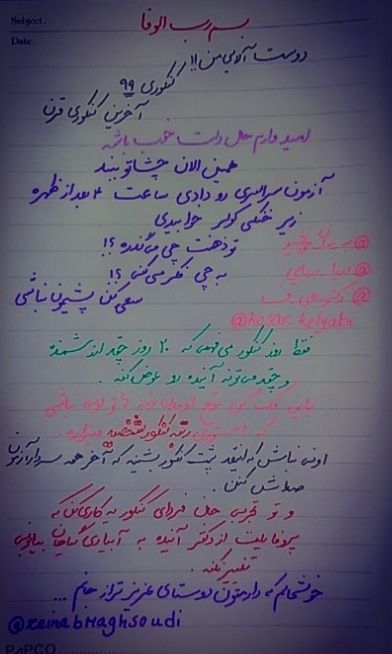 Subject:
Date:
بسم رب الوفا
دوست آلای من!!
کنکوری ۹۹
آخرین کنکوری قرن
امیدوارم حال دلت خوب باشه
همین الان چشاتو ببند
آزمون سراسری رو دادی ساعت ۴ بعد از ظهره
زیر خنکی کولر خوابیدی
تو ذهنت چی می‌گذره؟!
به چی فکر می‌کنی؟!
سعی کن پشیمون نباشی
@kosar_kelyabi
فقط روز کنکور می‌فهمی که ۲۰ روز چقد ارزشمنده
و چقد می‌تونه آینده رو عوض کنه.
که رتبه کنکور شخصیته
اونی نباش که انقد پشت کنکور بشینه که آخر همه سردار آزمون
صداش کنن.
و تو تجربی حال فردای کنکور یه کاری کن که
پروفایلت از دکتر آینده به آبیاری گیاهان دریایی
تغییر نکنه.
خوشحالم که دارمتون دوستای عزیزتر از جانم ...
@zeinabMaghsoudi
PAPCO